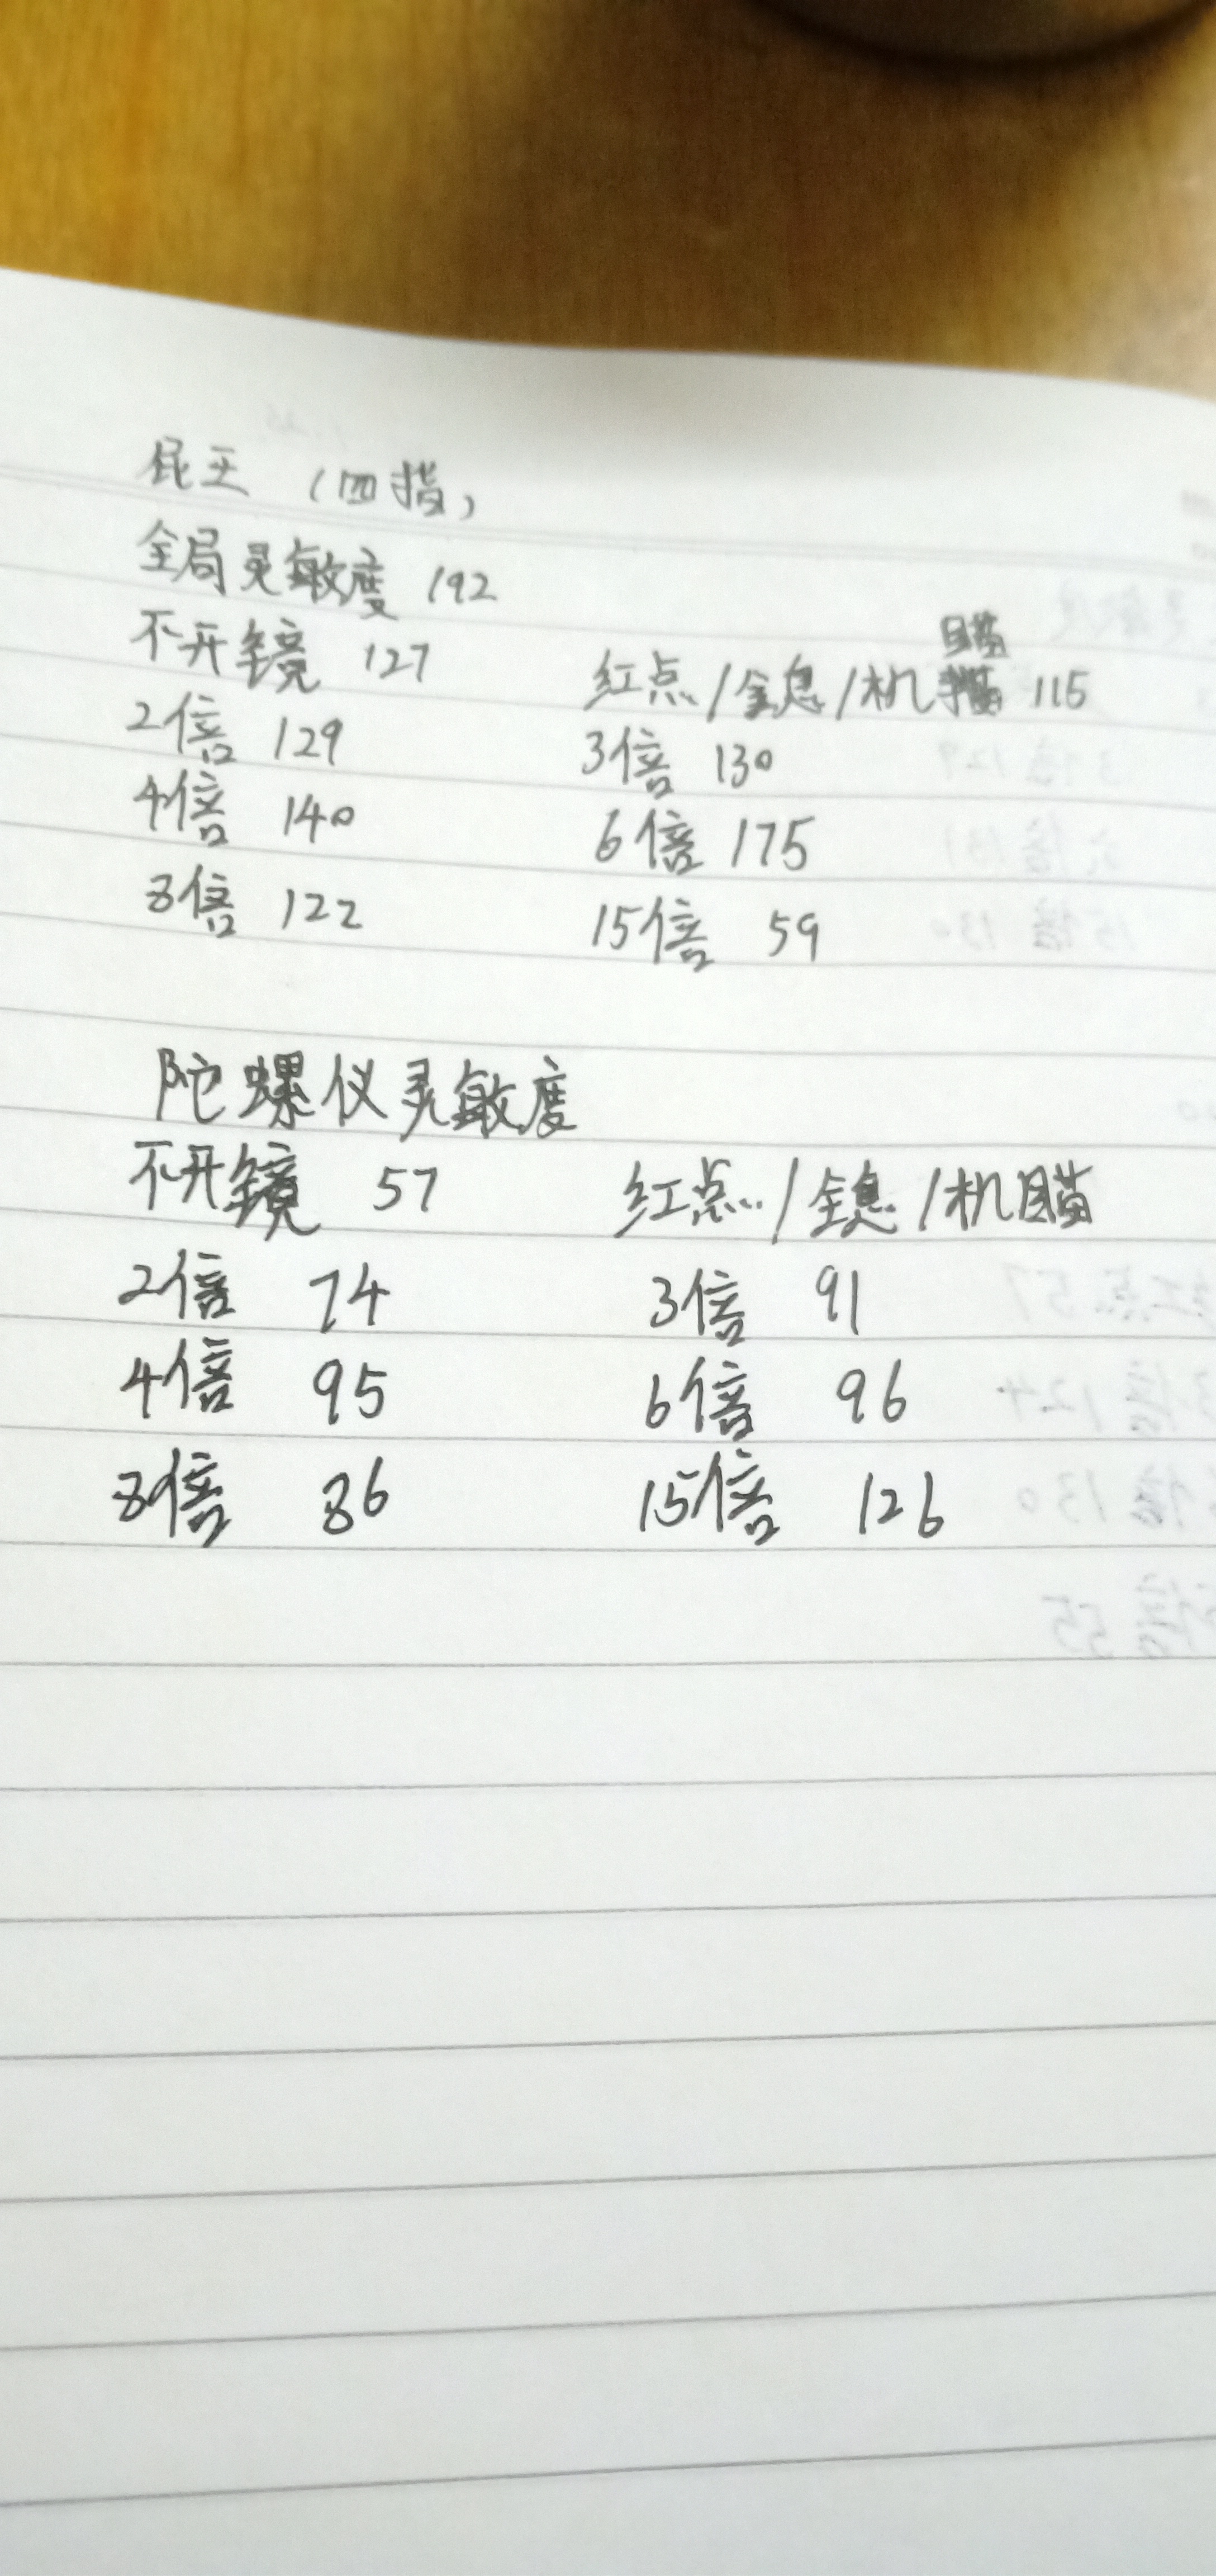 昆王 (四指)
全局灵敏度 192
不开镜 127 红点/全息/机瞄 115
2倍 129 3倍 130
4倍 140 6倍 175
8倍 122 15倍 59
陀螺仪灵敏度
不开镜 57 红点/全息/机瞄
2倍 74 3倍 91
4倍 95 6倍 96
8倍 86 15倍 126